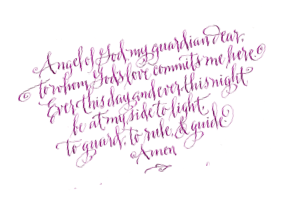 Angel of God my guardian dear,
to whom God's love commits me here
Ever this day and ever this night
be at my side to light,
to guard, to rule, & guide
Amen